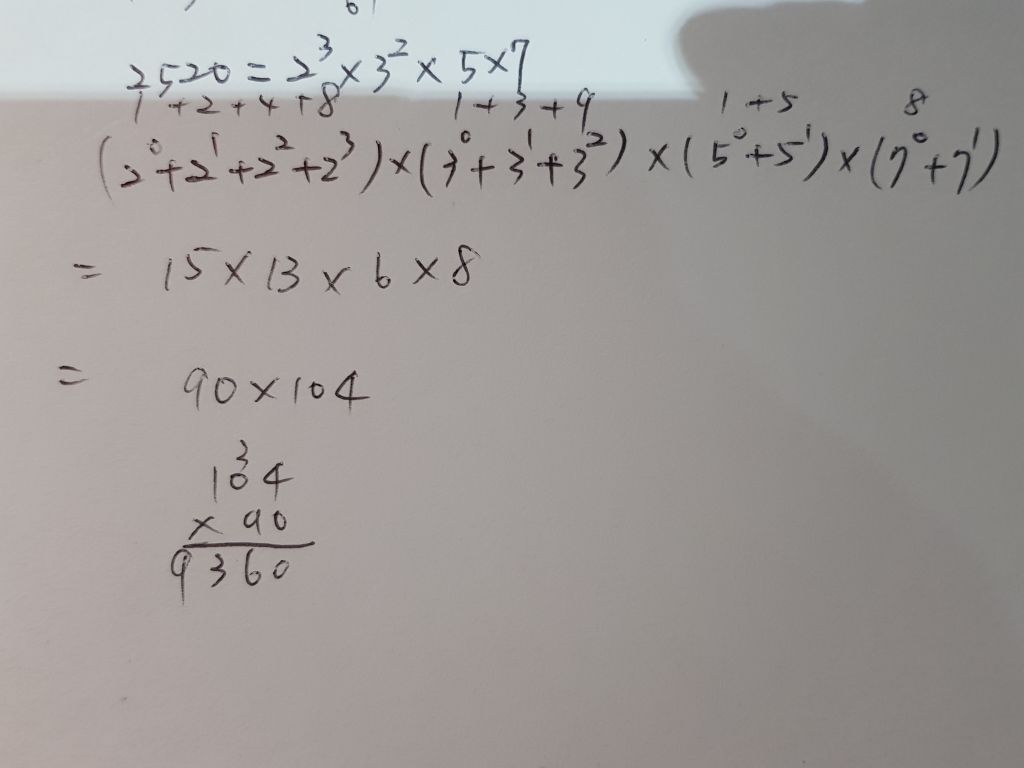 2520 = 2³ × 3² × 5 × 7
1 + 2 + 4 + 8 1 + 3 + 9 1 + 5 8
(2⁰ + 2¹ + 2² + 2³) × (3⁰ + 3¹ + 3²) × (5⁰ + 5¹) × (7⁰ + 7¹)
= 15 × 13 × 6 × 8
= 90 × 104
3
104
× 90
9360